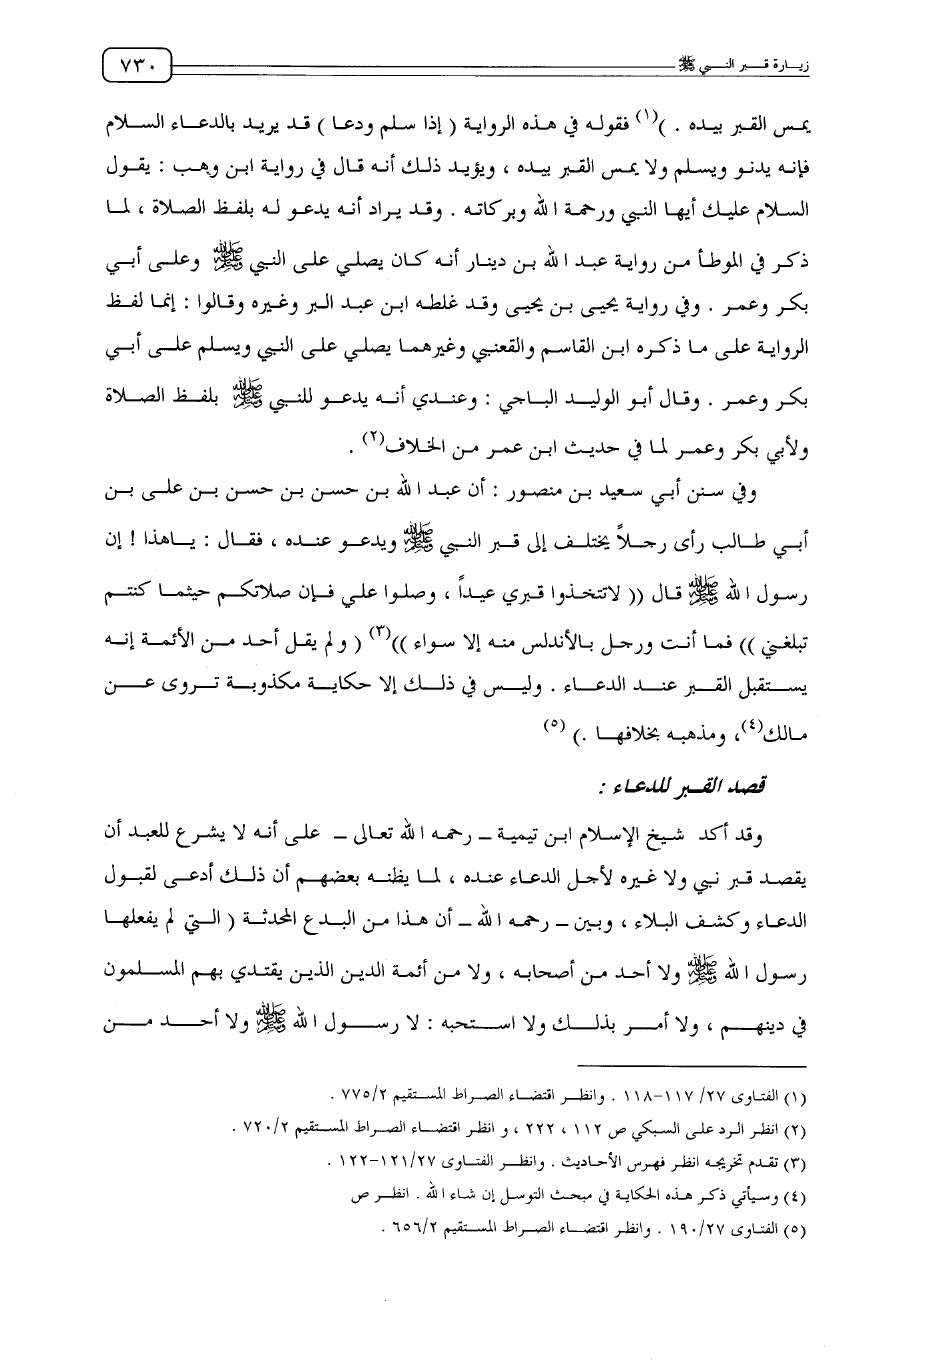 زيارة قبر النبي ﷺ
٧٣٠
يمس القبر بيده . )(١) فقوله في هذه الرواية ( إذا سلم ودعا ) قد يريد بالدعاء السلام
فإنه يدنو ويسلم ولا يمس القبر بيده ، ويؤيد ذلك أنه قال في رواية ابن وهب : يقول
السلام عليك أيها النبي ورحمة الله وبركاته . وقد يراد أنه يدعو له بلفظ الصلاة ، لما
ذكر في الموطأ من رواية عبد الله بن دينار أنه كان يصلي على النبي ﷺ وعلى أبي
بكر وعمر . وفي رواية يحيى بن يحيى وقد غلطه ابن عبد البر وغيره وقالوا : إنما لفظ
الرواية على ما ذكره ابن القاسم والقعنبي وغيرهما يصلي على النبي ويسلم على أبي
بكر وعمر . وقال أبو الوليد الباجي : وعندي أنه يدعو للنبي ﷺ بلفظ الصلاة
ولأبي بكر وعمر لما في حديث ابن عمر من الخلاف(٢) .
وفي سنن أبي سعيد بن منصور : أن عبد الله بن حسن بن حسن بن على بن
أبي طالب رأى رجلاً يختلف إلى قبر النبي ﷺ ويدعو عنده ، فقال : ياهذا ! إن
رسول الله ﷺ قال (( لاتتخذوا قبري عيداً ، وصلوا علي فإن صلاتكم حيثما كنتم
تبلغني )) فما أنت ورجل بالأندلس منه إلا سواء ))(٣) ( ولم يقل أحد من الأئمة إنه
يستقبل القبر عند الدعاء . وليس في ذلك إلا حكاية مكذوبة تروى عن
مالك(٤)، ومذهبه بخلافها .) (٥)
قصد القبر للدعاء :
وقد أكد شيخ الإسلام ابن تيمية ــ رحمه الله تعالى ــ على أنه لا يشرع للعبد أن
يقصد قبر نبي ولا غيره لأجل الدعاء عنده ، لما يظنه بعضهم أن ذلك أدعى لقبول
الدعاء وكشف البلاء ، وبين ــ رحمه الله ــ أن هذا من البدع المحدثة ( التي لم يفعلها
رسول الله ﷺ ولا أحد من أصحابه ، ولا من أئمة الدين الذين يقتدي بهم المسلمون
في دينهم ، ولا أمر بذلك ولا استحبه : لا رسول الله ﷺ ولا أحد من
(١) الفتاوى ٢٧/ ١١٧-١١٨ . وانظر اقتضاء الصراط المستقيم ٧٧٥/٢ .
(٢) انظر الرد على السبكي ص ١١٢ ، ٢٢٢ ، و انظر اقتضاء الصراط المستقيم ٧٢٠/٢ .
(٣) تقدم تخريجه انظر فهرس الأحاديث . وانظر الفتاوى ١٢١/٢٧-١٢٢ .
(٤) وسيأتي ذكر هذه الحكاية في مبحث التوسل إن شاء الله . انظر ص
(٥) الفتاوى ١٩٠/٢٧ . وانظر اقتضاء الصراط المستقيم ٦٥٦/٢ .